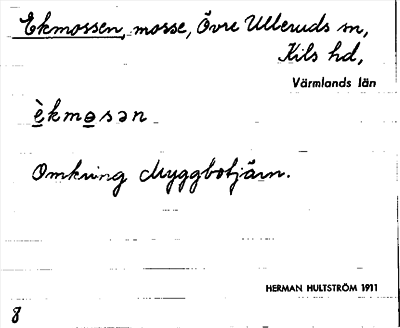 Ekmossen, mosse, Övre Ulleruds sn,
Kils hd,
Värmlands län
èkmɵsən
Omkring Myggbotjärn.
HERMAN HULTSTRÖM 1911
8